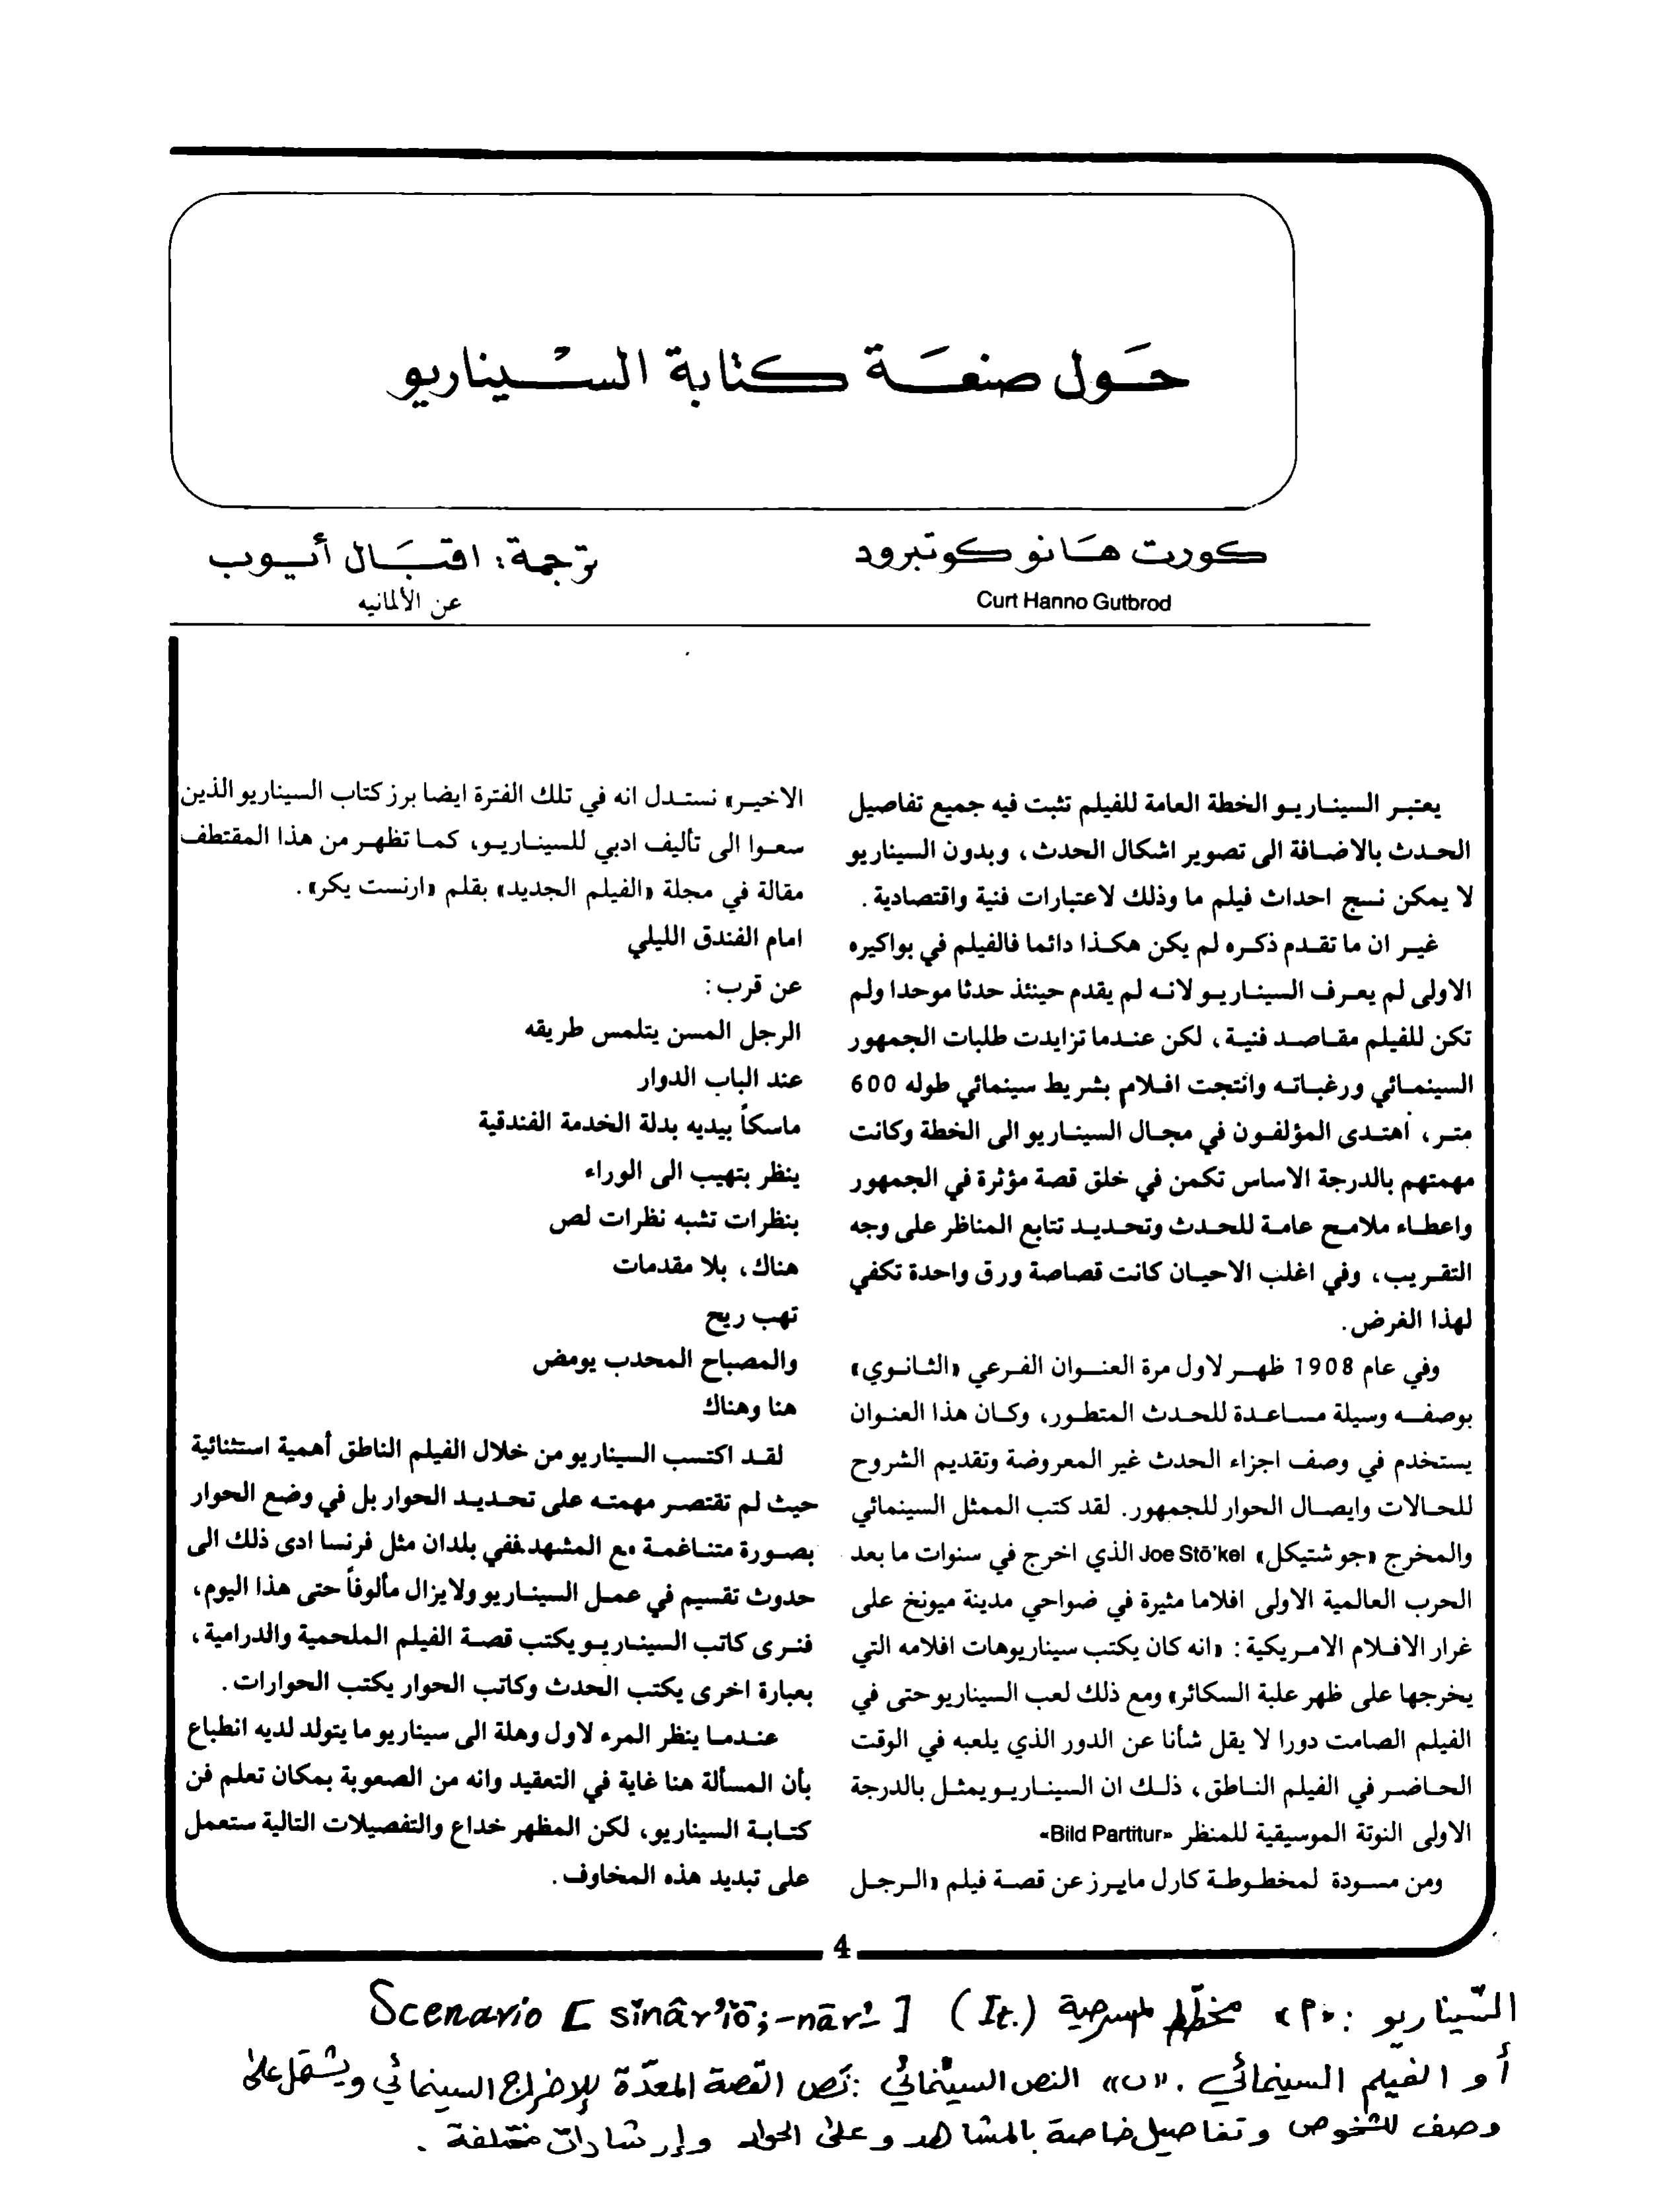 حَول صنعَة كتابة السْيناريو
كورت هَانو كوتبرود
Curt Hanno Gutbrod
ترجمة: اقبَال أيوب
عن الألمانيه
يعتبر السيناريو الخطة العامة للفيلم تثبت فيه جميع تفاصيل
الحدث بالاضافة الى تصوير اشكال الحدث، وبدون السيناريو
لا يمكن نسج احداث فيلم ما وذلك لاعتبارات فنية واقتصادية.
غير ان ما تقدم ذكره لم يكن هكذا دائما فالفيلم في بواكيره
الاولى لم يعرف السيناريو لانه لم يقدم حينئذ حدثا موحدا ولم
تكن للفيلم مقاصد فنية، لكن عندما تزايدت طلبات الجمهور
السينمائي ورغباته وانتجت افلام بشريط سينمائي طوله 600
متر، أهتدى المؤلفون في مجال السيناريو الى الخطة وكانت
مهمتهم بالدرجة الاساس تكمن في خلق قصة مؤثرة في الجمهور
واعطاء ملامح عامة للحدث وتحديد تتابع المناظر على وجه
التقريب، وفي اغلب الاحيان كانت قصاصة ورق واحدة تكفي
لهذا الغرض.
وفي عام 1908 ظهر لاول مرة العنوان الفرعي «الثانوي»
بوصفه وسيلة مساعدة للحدث المتطور، وكان هذا العنوان
يستخدم في وصف اجزاء الحدث غير المعروضة وتقديم الشروح
للحالات وايصال الحوار للجمهور. لقد كتب الممثل السينمائي
والمخرج «جو شتيكل» Joe Stö'kel الذي اخرج في سنوات ما بعد
الحرب العالمية الاولى افلاما مثيرة في ضواحي مدينة ميونخ على
غرار الافلام الامريكية: «انه كان يكتب سيناريوهات افلامه التي
يخرجها على ظهر علبة السكائر» ومع ذلك لعب السيناريو حتى في
الفيلم الصامت دورا لا يقل شأنا عن الدور الذي يلعبه في الوقت
الحاضر في الفيلم الناطق، ذلك ان السيناريو يمثل بالدرجة
الاولى النوتة الموسيقية للمنظر «Bild Partitur»
ومن مسودة لمخطوطة كارل مايرز عن قصة فيلم «الرجل
الاخير» نستدل انه في تلك الفترة ايضا برز كتاب السيناريو الذين
سعوا الى تأليف ادبي للسيناريو، كما تظهر من هذا المقتطف
مقالة في مجلة «الفيلم الجديد» بقلم «ارنست يكر».
امام الفندق الليلي
عن قرب:
الرجل المسن يتلمس طريقه
عند الباب الدوار
ماسكاً بيديه بدلة الخدمة الفندقية
ينظر بتهيب الى الوراء
بنظرات تشبه نظرات لص
هناك، بلا مقدمات
تهب ريح
والمصباح المحدب يومض
هنا وهناك
لقد اكتسب السيناريو من خلال الفيلم الناطق أهمية استثنائية
حيث لم تقتصر مهمته على تحديد الحوار بل في وضع الحوار
بصورة متناغمة مع المشهد ففي بلدان مثل فرنسا ادى ذلك الى
حدوث تقسيم في عمل السيناريو ولا يزال مألوفاً حتى هذا اليوم،
فنرى كاتب السيناريو يكتب قصة الفيلم الملحمية والدرامية،
بعبارة اخرى يكتب الحدث وكاتب الحوار يكتب الحوارات.
عندما ينظر المرء لاول وهلة الى سيناريو ما يتولد لديه انطباع
بأن المسألة هنا غاية في التعقيد وانه من الصعوبة بمكان تعلم فن
كتابة السيناريو، لكن المظهر خداع والتفصيلات التالية ستعمل
على تبديد هذه المخاوف.
4
السّيناريو: «م» مخطّط لمسرحية (It.) Scenario [sinâr'iō;-nār'-]
أو الفيلم السينمائي. «ب» النص السينمائي: نَص القصة المعدّة للإخراج السينمائي ويشتمل على
وصف للشخوص وتفاصيل خاصة بالمشاهد وعلى الحوار وإرشادات مختلفة.